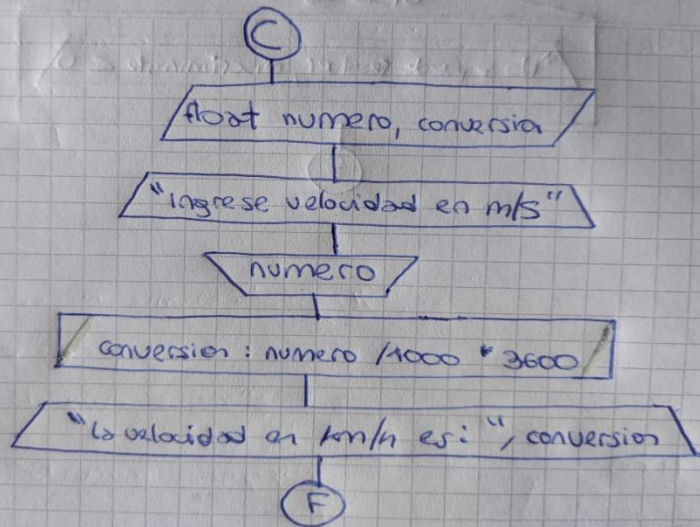 C
float numero, conversion
"Ingrese velocidad en m/s"
numero
conversion : numero /1000 * 3600
"la velocidad en km/h es: ", conversion
F